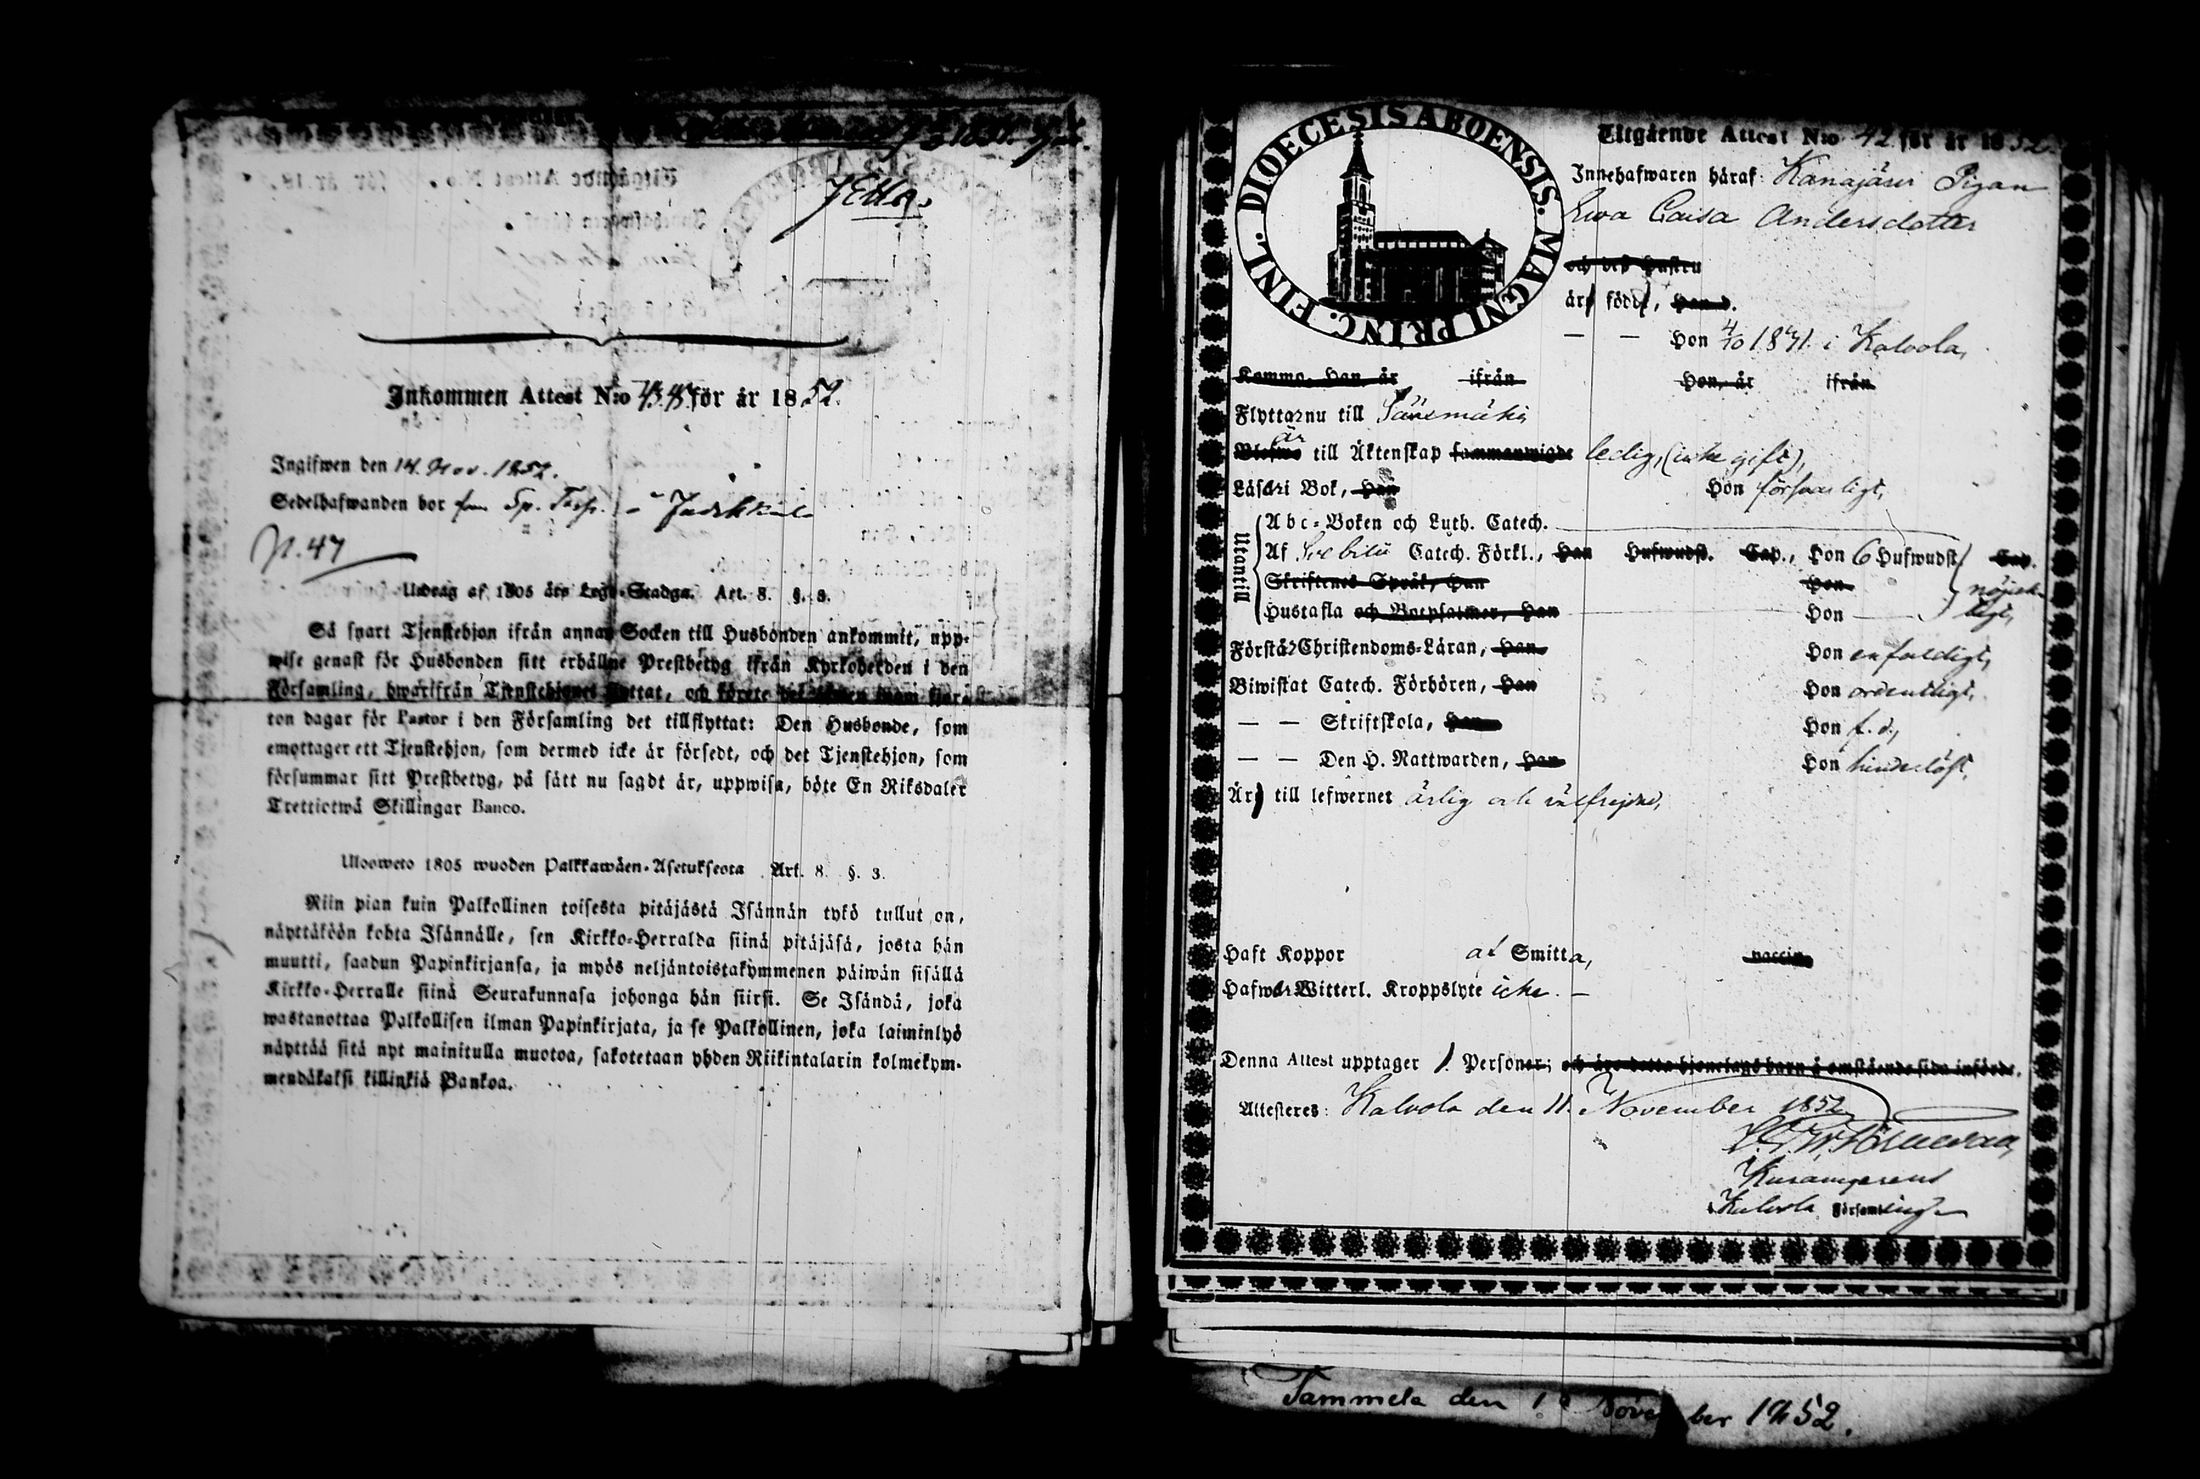 Inkommen Attest N:o för år 1852.
Ingifwen den 14. Nov. 1852.
Sedelhafwanden bor
N. 47
Utdrag af 1805 års Lego-Stadga. Art. 8. §. 3.
Så snart Tjenstehjon ifrån annan Socken till Husbonden ankommit, upp-
wise genast för Husbonden sitt erhållne Prestbetyg ifrån Kyrkoherden i den
Församling, hwarifrån Tjenstehjonet flyttat, och förete
ton dagar för Pastor i den Församling det tillflyttat: Den Husbonde, som
emottager ett Tjenstehjon, som dermed icke är försedt, och det Tjenstehjon, som
försummar sitt Prestbetyg, på sätt nu sagdt är, uppwisa, böte En Riksdaler
Trettiotwå Skillingar Banco.
Ulosweto 1805 wuoden Palkkawäen-Asetuksesta Art. 8. §. 3.
Niin pian kuin Palkollinen toisesta pitäjästä Isännän tykö tullut on,
näyttäköön kohta Isännälle, sen Kirkko-Herralda siinä pitäjäsä, josta hän
muutti, saadun Papinkirjansa, ja myös neljäntoistakymmenen päiwän sisällä
Kirkko-Herralle siinä Seurakunnasa johonga hän siirsi. Se Isändä, joka
wastanottaa Palkollisen ilman Papinkirjata, ja se Palkollinen, joka laiminlyö
näyttää sitä nyt mainitulla muotoa, sakotetaan yhden Riikintalarin kolmekym-
mendäkaksi killinkiä Bankoa.
DIOECESIS ABOENSIS. MAGNI PRINC. FINL.
Utgående Attest N:o 42 för år 1852.
Innehafwaren häraf Kanajärvi Pigan
Ewa Caisa Andersdotter
och dess hustru
äro född, han d.
— — Hon 4/10 18 i Kalvola,
Komma, Han, år ifrån Hon, år ifrån
Flyttar nu till Sääxmäki,
är till Äktenskap sammanwigde ledig, (icke gift),
Läser i Bok, Han Hon försvarligt,
Utantill
Abc-Boken och Luth. Catech.
Af Svebilii Catech. Förkl., Han Hufwudst. Cap., Hon 6 Hufwudst. Cap.
Skriftenes Språk, Han Hon nöjak-
Hustafla och Botpsalmer, Han Hon — ligt,
Förstår Christendoms-Läran, Han Hon enfaldigt,
Biwistat Catech. Förhören, Han Hon ordentligt,
— — Skriftskola, Han Hon f. d.,
— — Den H. Nattwarden, Han Hon hinderlöst,
Är till lefwernet ärlig och välfrejdad,
Haft Koppor af Smitta, vaccin
Hafwer Witterl. Kroppslyte icke. —
Denna Attest upptager 1 Personer; och äro detta hjonelags barn å omstående sida införde.
Attesteres: Kalvola den 11. November 1852
Kalvola Församlings
Tammela den November 1852.